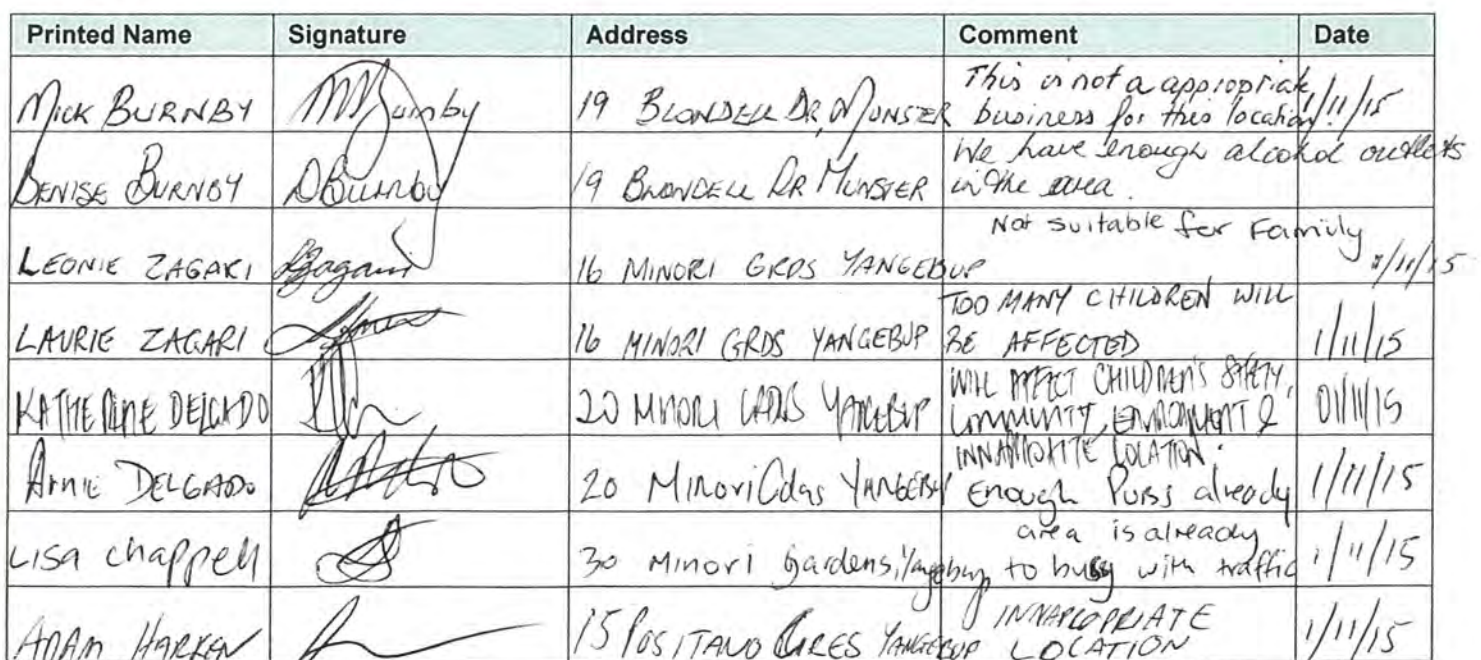 Printed Name Signature Address Comment Date
MICK BURNBY MBurnby 19 BLONDELL DR, MUNSTER This is not a appropriate business for this location!! 1/11/15
DENISE BURNBY DBurnby 19 BLONDELL DR MUNSTER We have enough alcohol outlets in the area.
LEONIE ZAGARI LZagari 16 MINORI GRDS YANGEBUP Not suitable for Family 1/11/15
LAURIE ZAGARI 16 MINORI GRDS YANGEBUP TOO MANY CHILDREN WILL BE AFFECTED 1/11/15
KATHERINE DELGADO 20 MINORI GRDNS YANGEBUP WILL AFFECT CHILDREN'S SAFETY, COMMUNITY, ENVIRONMENT & INNAPROPIATE LOCATION. 01/11/15
DELGADO 20 Minori Gdns YANGEBUP Enough Pubs already 1/11/15
LISA chappell 30 Minori gardens, Yangebup area is already to busy with traffic 1/11/15
ADAM HARKEN 15 POSITANO CRES YANGEBUP INNAPROPRIATE LOCATION 1/11/15